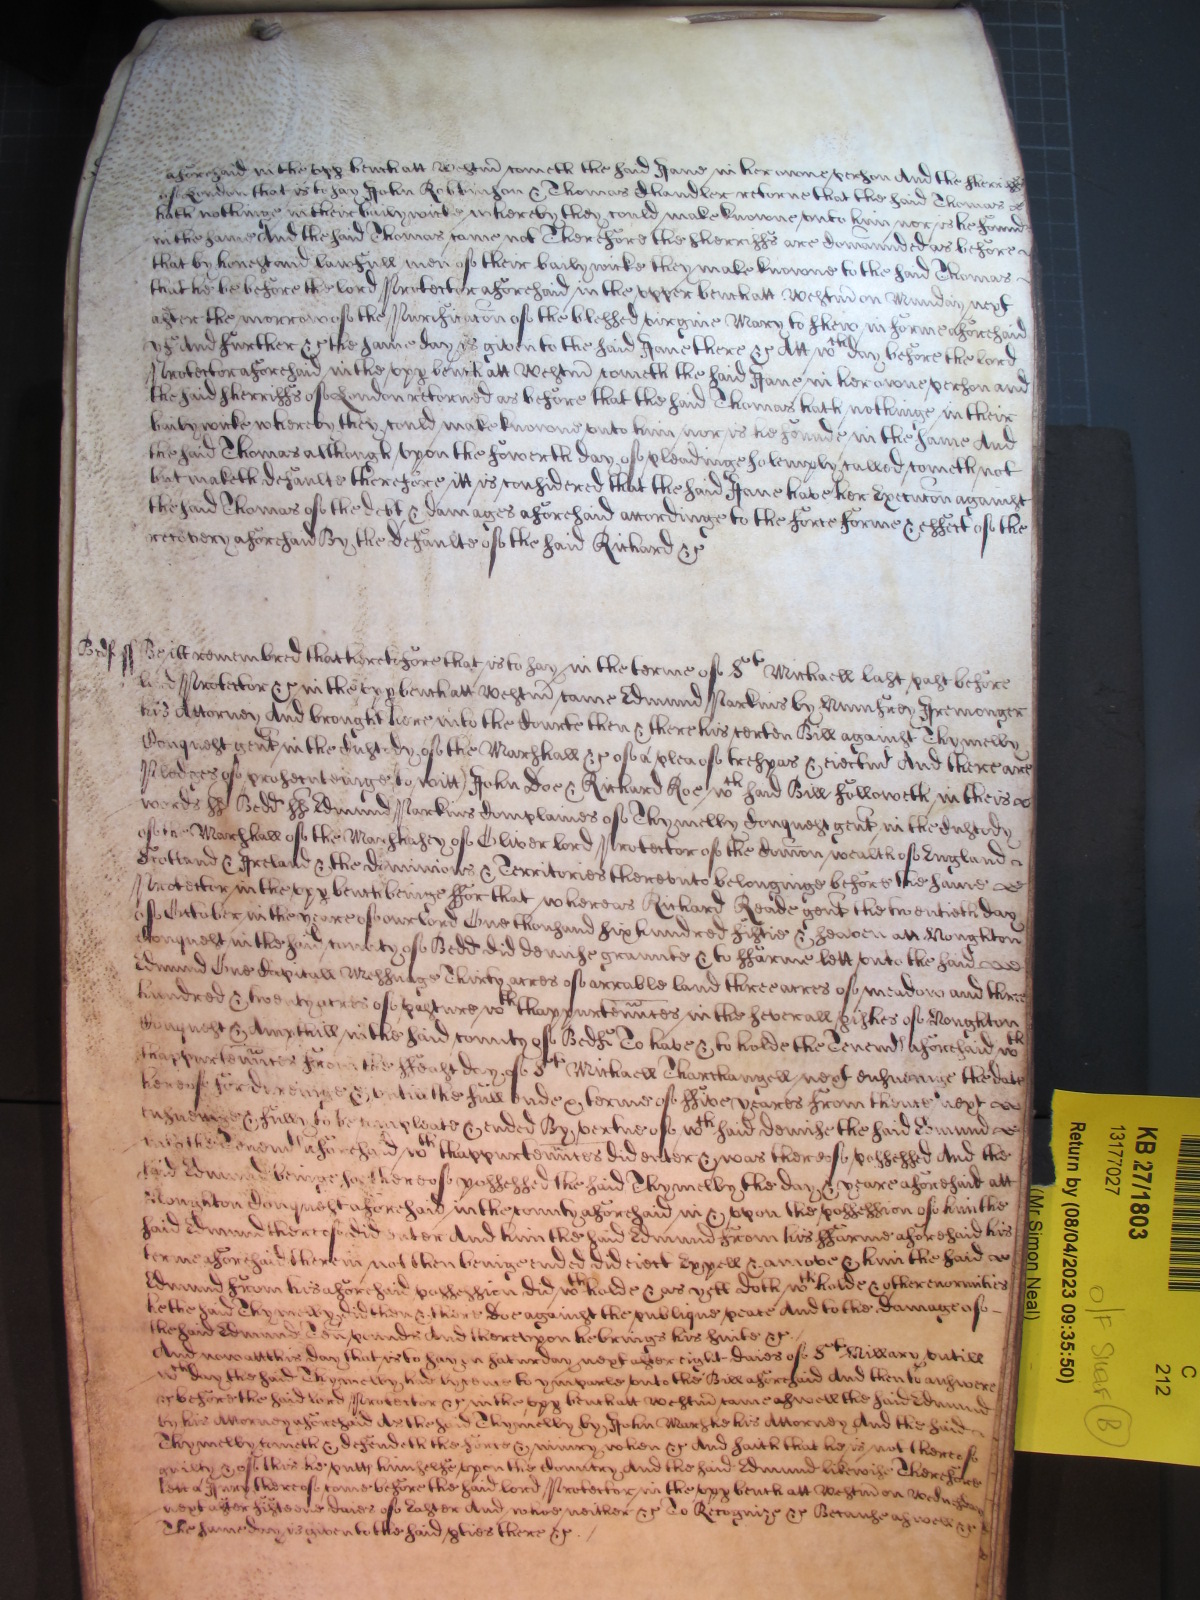 aforesaid in the upp bench att Westm̄ cometh the said Jane in her owne person And the sherriffs
of London that is to say John Robinson & Thomas Chandler retorne that the said Thomas
hath nothinge in their bailywicke whereby they could make knowne unto him nor is he found
in the same And the said Thomas came not Therefore the sherriffs are com̄aunded as before
that by honest and lawfull men of their bailywicke they make knowne to the said Thomas
that he be before the lord Protector aforesaid in the upper bench att Westm̄ on Munday next
after the morrow of the Purificatōn of the blessed virgine Mary to shew in forme aforesaid
yf And further &c the same day is given to the said Jane there &c Att wch day before the lord
Protector aforesaid in the upp bench att Westm̄ cometh the said Jane in her owne person and
the said sherriffs of London retorned as before that the said Thomas hath nothinge in their
bailywicke whereby they could make knowne unto him nor is he founde in the same And
the said Thomas although upon the fowerth day of pleadinge solemply called cometh not
but maketh defaulte therefore itt is considered that the said Jane have her Execucōn against
the said Thomas of the debt & damages aforesaid accordinge to the force forme & effect of the
recovery aforesaid By the defaulte of the said Richard &c
Bedf ss Be itt remembred that heretofore that is to say in the terme of St Michaell last past before
lord Protector &c in the upp bench att Westm̄ came Edmund Parkins by Humfrey Iremonger
his Attorney And brought here into the Courte then & there his certen Bill against Thymelby
Conquest gent in the Custody of the Marshall &c of a plea of trespas & eiectmt And there are
Pledges of prosecuteinge to witt John Doe & Richard Roe wch said Bill followeth in theis
words ss Bedd ss Edmund Parkins Complaines of Thymelby Conquest gent in the Custody
of the Marshall of the Marshalsey of Oliver lord Protector of the Com̄on wealth of England
Scotland & Ireland & the dominions & Territories thereunto belonginge before the same
Protector in the upp bench beinge ffor that whereas Richard Reade gent the twentieth day
of October in the yeare of our Lord One thousand six hundred fiftie & seaven att Houghton
Conquest in the said county of Bedd did demise graunte & to ffarme lett unto the said
Edmund One Capitall Messuage Thirty acres of arrable land three acres of meadow and three
hundred & twenty acres of pasture wth thappurteñnces in the severall pishes of Houghton
Conquest & Ampthill in the said county of Bedff To have & to holde the Tenemts aforesaid wth
thappurteñnces from the ffeast day of St Michaell Tharchangell next ensueinge the date
hereof for dureinge & untill the full ende & terme of ffive yeares from thence next
ensueinge & fully to be compleate & ended By vertue of wch said demise the said Edmund
into the Tenemts aforesaid wth thappurteñnces did enter & was thereof possessed And the
said Edmund beinge soe thereof possessed the said Thymelby the day & yeare aforesaid att
Houghton Conquest aforesaid in the county aforesaid in & upon the possession of him the
said Edmund thereof did enter And him the said Edmund from his ffarme aforesaid his
terme aforesaid therein not then beinge ended did eiect Expell & amove & him the said
Edmund from his aforesaid possession did wth holde & as yett doth wth holde & other enormities
he the said Thymelby did then & there doe against the publique peace And to the damage of
the said Edmund Ten pounds And thereupon he brings his suite &c /
And now att this day that is to say on saturday next after eight daies of St Hillary untill
wch day the said Thymelby had lycence to ymparle unto the Bill aforesaid And then to answere
&c before the said lord Protector &c in the upp bench att Westm̄ came aswell the said Edmund
by his Attorney aforesaid As the said Thymelby by John Marshe his Attorney And the said
Thymelby cometh & defendeth the force & iniury when &c And saith that he is not thereof
guilty & of this he putts himselfe upon the Country And the said Edmund likewise Therefore
lett a Jury thereof come before the said lord Protector in the upp bench att Westm̄ on Wednesday
next after fifteene daies of Easter And whoe neither &c To Recognize &c Because aswell &c
The same day is given to the said pties there &c /
KB 27/1803
13177027
Return by (08/04/2023 09:35:50)
(Mr Simon Neal)
C
212
B